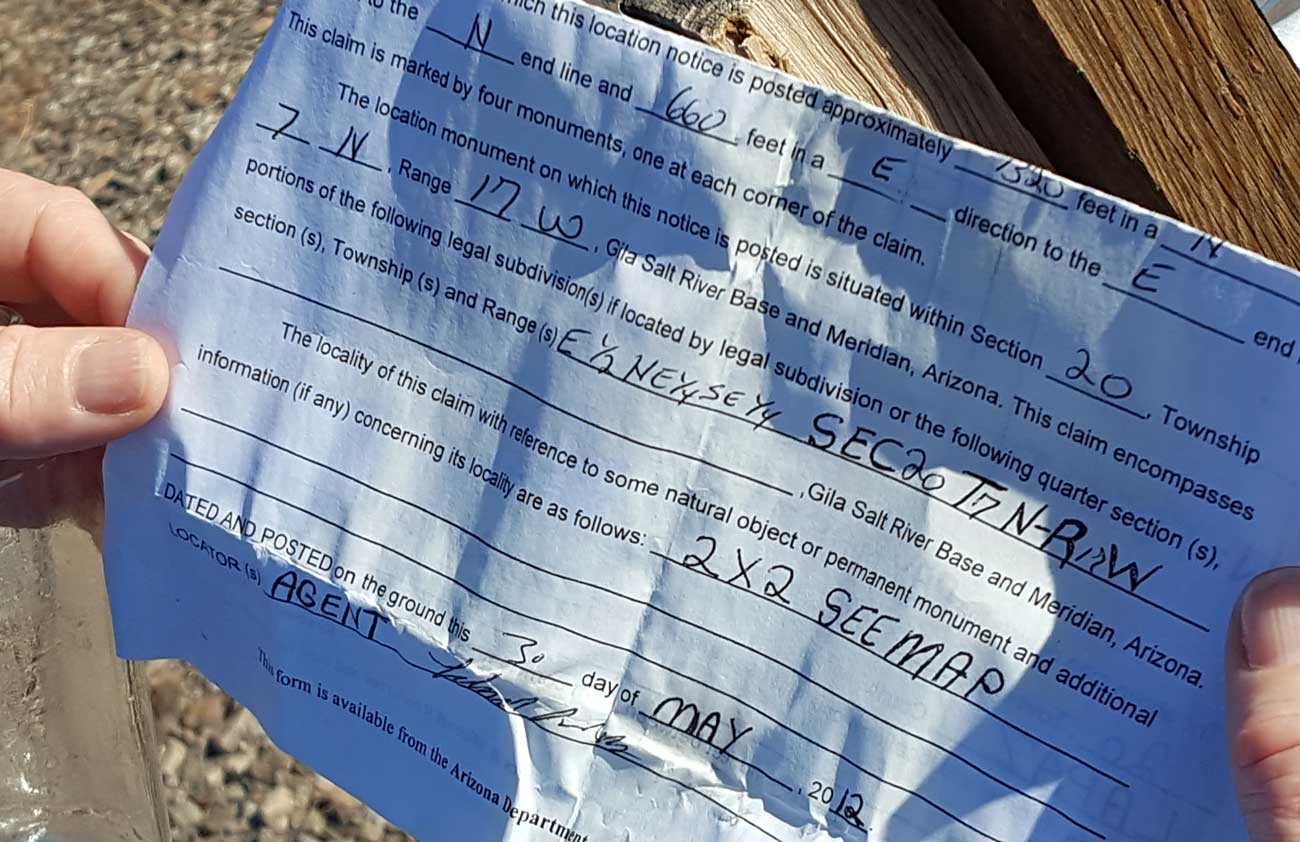 to the N end line and 660 feet in a E direction to the E end
which this location notice is posted approximately 1320 feet in a N
This claim is marked by four monuments, one at each corner of the claim.
The location monument on which this notice is posted is situated within Section 20, Township
7 N, Range 17 W, Gila Salt River Base and Meridian, Arizona. This claim encompasses
portions of the following legal subdivision(s) if located by legal subdivision or the following quarter section (s),
section (s), Township (s) and Range (s) E 1/2 NE1/4 SE 1/4 SEC20 T7N-R17W
, Gila Salt River Base and Meridian, Arizona.
The locality of this claim with reference to some natural object or permanent monument and additional
information (if any) concerning its locality are as follows: 2X2 SEE MAP
DATED AND POSTED on the ground this 30 day of MAY, 2012
LOCATOR (s) AGENT
This form is available from the Arizona Department